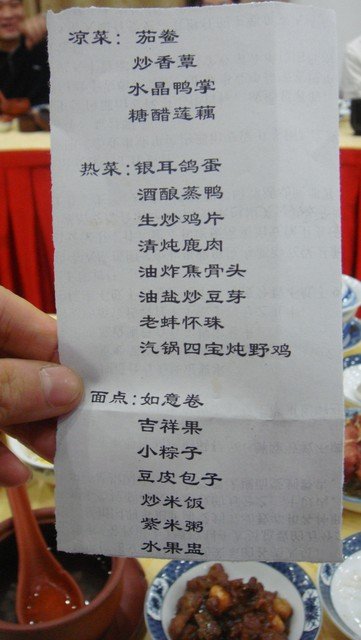 凉菜：茄鲞
炒香蕈
水晶鸭掌
糖醋莲藕
热菜：银耳鸽蛋
酒酿蒸鸭
生炒鸡片
清炖鹿肉
油炸焦骨头
油盐炒豆芽
老蚌怀珠
汽锅四宝炖野鸡
面点：如意卷
吉祥果
小粽子
豆皮包子
炒米饭
紫米粥
水果盅